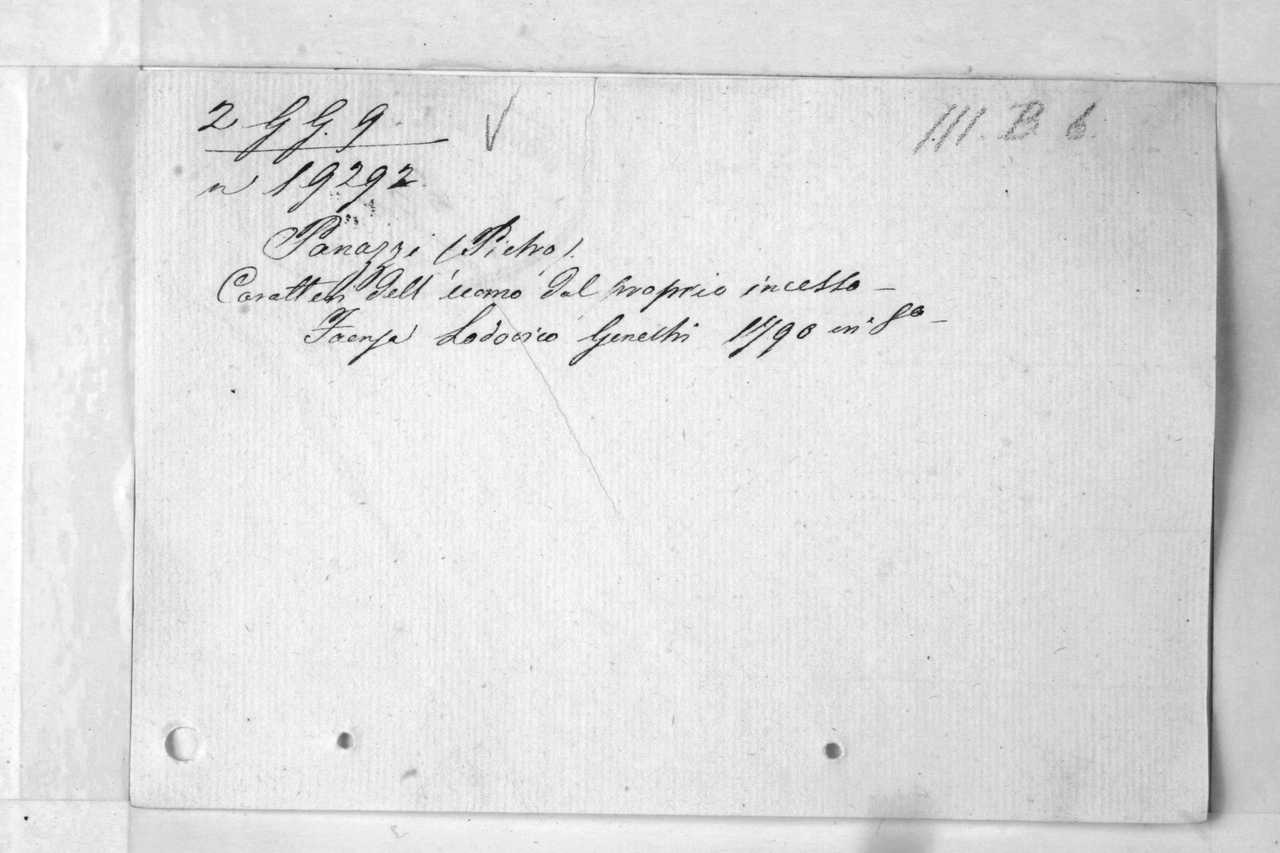 2 G G. 9
III. B 6
n 19292
Panazzi (Pietro).
Caratteri dell' uomo dal proprio incesso –
Faenza Lodovico Genestri 1790 in 8° –